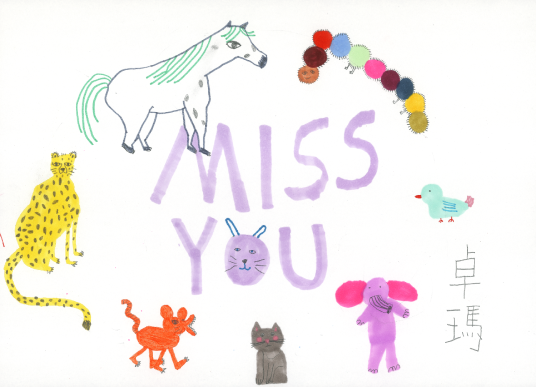 MISS
YOU
卓
瑪